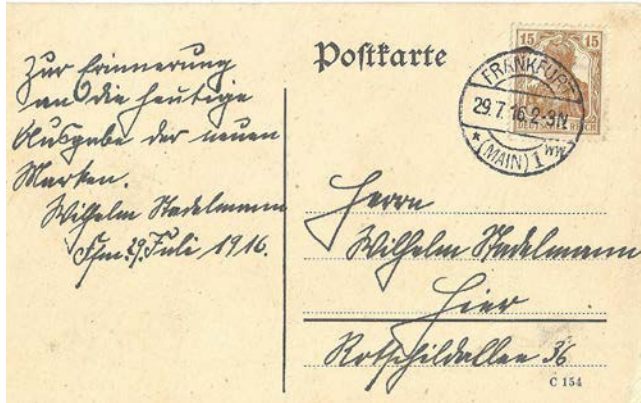 Zur Erinnerung
an die heutige
Ausgabe der neuen
Marken.
Wilhelm Stadelmann
Ffm. 29. Juli 1916.
Postkarte
15 15
DEUTSCHES REICH
FRANKFURT
29.7.16.2-3N.
* (MAIN) 1 WW
Herrn
Wilhelm Stadelmann
Hier
Rotschildallee 36
C 154